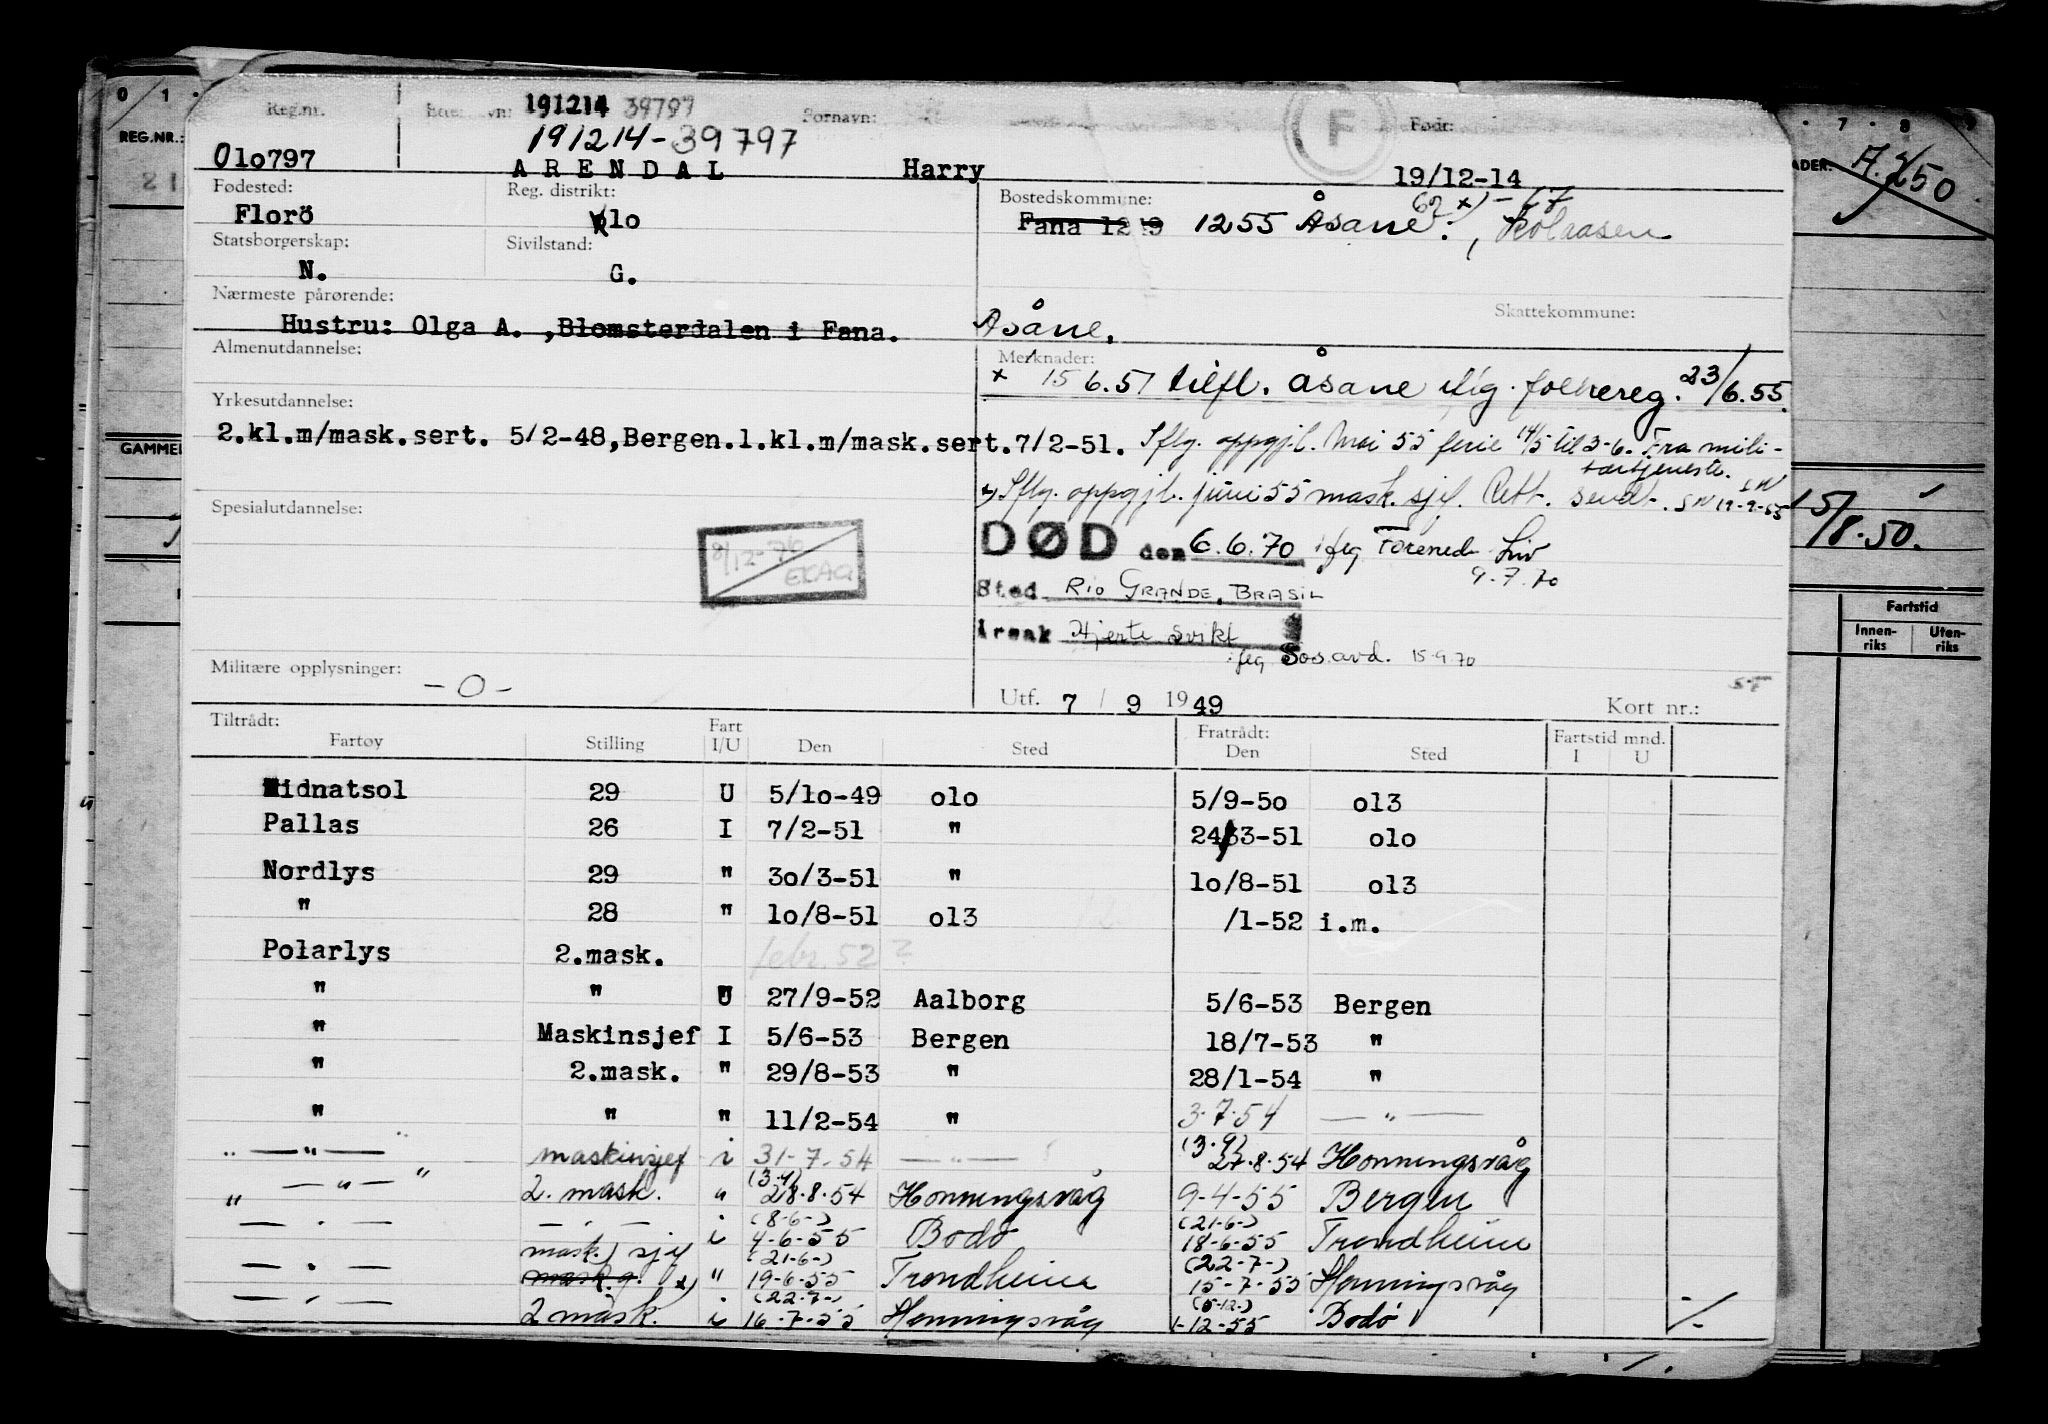 0 1
7 8 9
REG.NR.:
21
GAMMEL
ADER: A.250
15/8.50.
Fartstid
Innen-riks Uten-riks
Reg.nr. Etternavn: 191214 39797 Fornavn: F Født:
191214-39797
Olo797 ARENDAL Harry 19/12-14
Fødested: Reg. distrikt: Bostedskommune: 62 x) - 67
Florö olo Fana 1249 1255 Åsane.,
Statsborgerskap: Sivilstand:
N. G.
Nærmeste pårørende: Skattekommune:
Hustru: Olga A. ,Blomsterdalen i Fana. Åsåne.
Almenutdannelse: Merknader:
x 15 6.51 tilfl. Åsane iflg. folkereg. 23/6.55.
Yrkesutdannelse:
2.kl.m/mask.sert. 5/2-48,Bergen.1.kl.m/mask.sert.7/2-51. Iflg. oppgj.l. Mai 55 ferie 14/5 til 3-6. Fra mili-
tærtjeneste. SN
x) Iflg. oppgj.l. juni 55 mask.sjef. Rett. sendt. SN 19-9-55
Spesialutdannelse:
9/12-76 EKAG
DØD den 6.6.70 ifeg Forened Liv
9.7.70
Sted RIO GRANDE, BRASIL
Årsak Hjerte svikt
ifeg Sos.avd. 15.9.70
Militære opplysninger: -0-
Utf. 7 / 9 1949 Kort nr.:
Tiltrådt: Fart Fratrådt: Fartstid mnd.
Fartøy Stilling I/U Den Sted Den Sted I U
Midnatsol 29 U 5/10-49 olo 5/9-50 ol3
Pallas 26 I 7/2-51 " 24/3-51 olo
Nordlys 29 " 30/3-51 " 10/8-51 ol3
" 28 " 10/8-51 ol3 /1-52 i.m.
Polarlys 2.mask. febr. 52 ?
" " U 27/9-52 Aalborg 5/6-53 Bergen
" Maskinsjef I 5/6-53 Bergen 18/7-53 "
" 2.mask. " 29/8-53 " 28/1-54 "
" " " 11/2-54 " 3.7.54 — " —
— " — maskinsjef i 31-7-54 — " — (3.9) 27.8.54 Honningsvåg
— " — 2. mask. " (3.9) 28.8.54 Honningsvåg 9-4-55 Bergen
— " — — " — i (8-6-) 4-6-55 Bodø (21-6-) 18-6-55 Trondheim
— " — mask.sjef mask.g. x) " (21-6-) 19-6-55 Trondheim (22-7-) 15-7-55 Honningsvåg
— " — 2 mask. i (22.7-) 16-7-55 Honningsvåg (5-12-) 1-12-55 Bodø